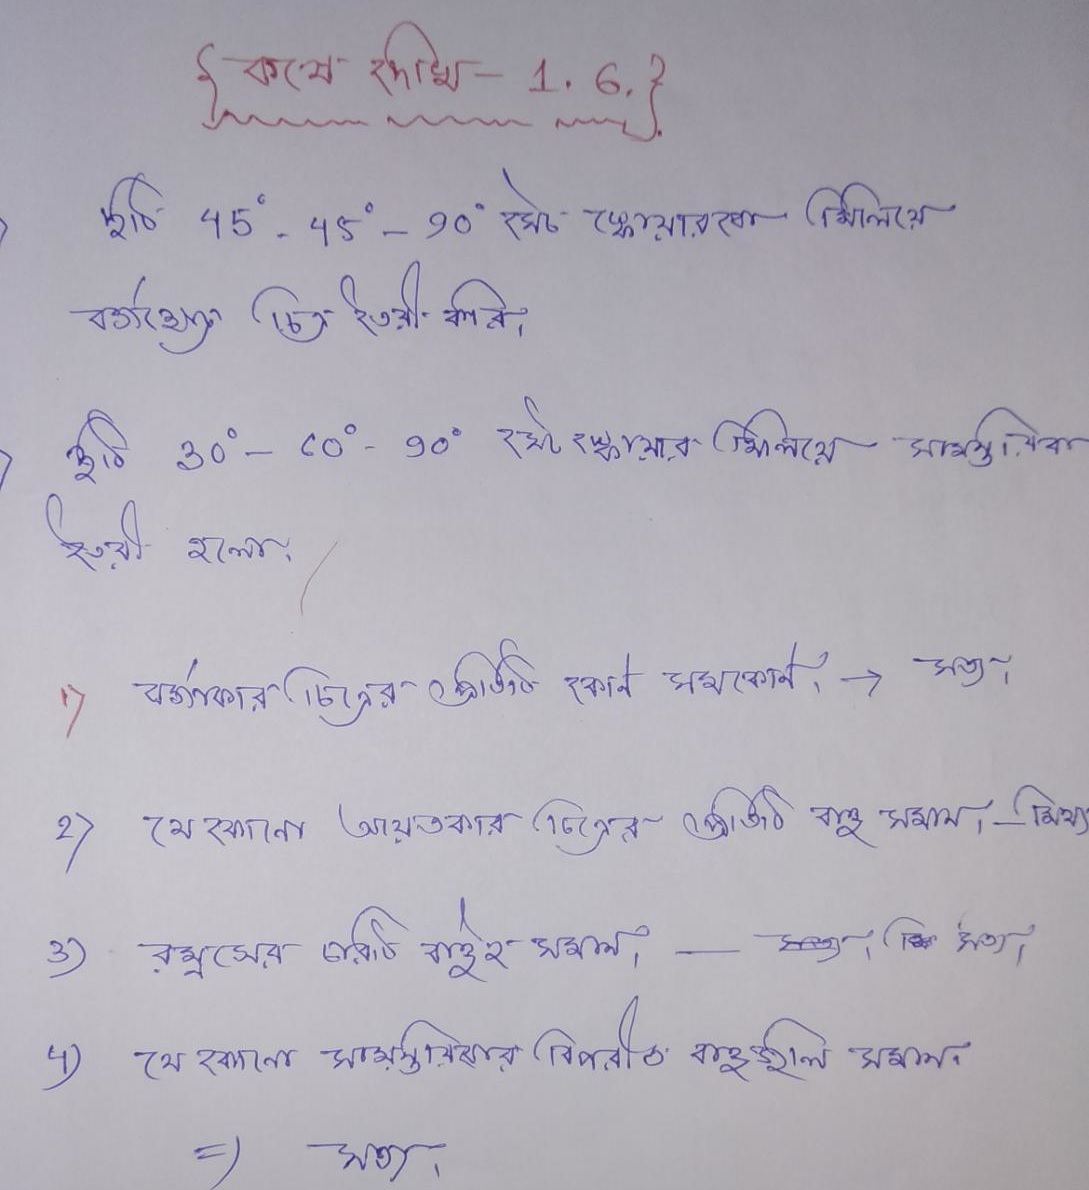 {কষে দেখি - 1.6.}
দুটি 45° - 45° - 90° সেট স্কোয়ারকে মিলিয়ে
বর্গক্ষেত্র চিত্র তৈরী করি।
দুটি 30° - 60° - 90° সেট স্কোয়ার মিলিয়ে সামন্তরিক
তৈরী হলো।
1) বর্গাকার চিত্রের প্রতিটি কোন সমকোন। → সত্য।
2) যে কোনো আয়তকার চিত্রের প্রতিটি বাহু সমান। - মিথ্যা
3) রম্বসের চারটি বাহুই সমান। — সত্য।
4) যে কোনো সামন্তরিকার বিপরীত বাহুগুলি সমান।
=) সত্য।